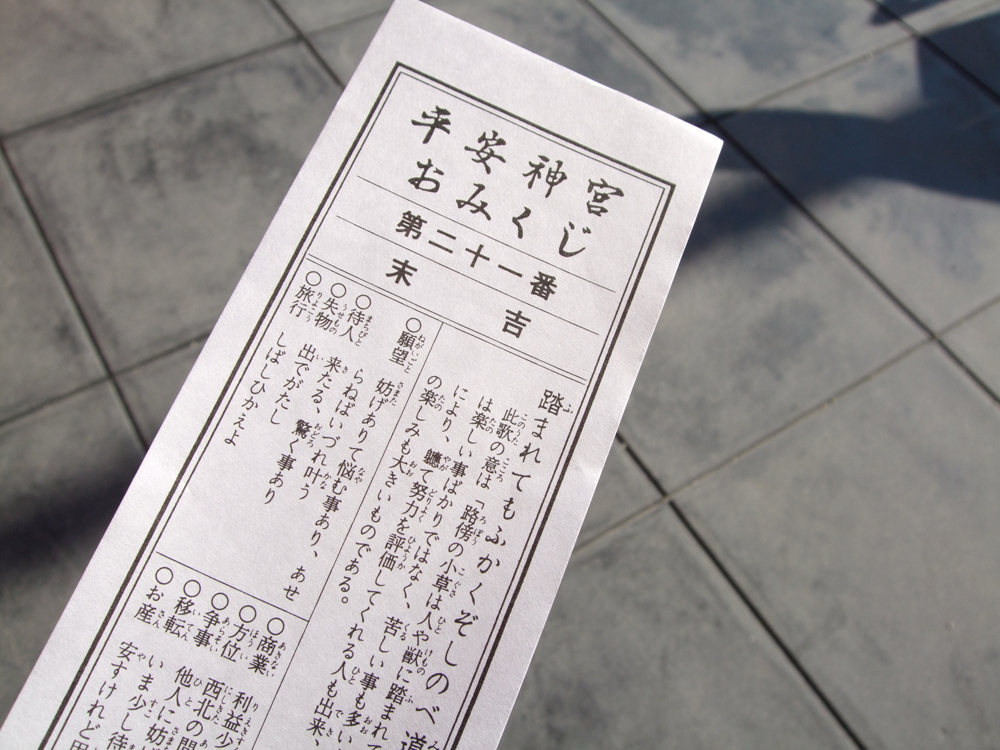 平安神宮
おみくじ
第二十一番
末吉
踏まれてもふかくぞしのべ道
此歌の意は「路傍の小草は人や獣に踏まれて
は楽しい事ばかりではなく、苦しい事も多い
により、軈て努力を評価してくれる人も出来、
の楽しみも大きいものである。
○願望 妨げありて悩む事あり、あせ
らねばいづれ叶う
○待人 来たる、驚く事あり
○失物 出でがたし
○旅行 しばしひかえよ
○商業 利益少
○方位 西北の
○争事 他人に妨
○移転 いま少し待
○お産 安すけれど